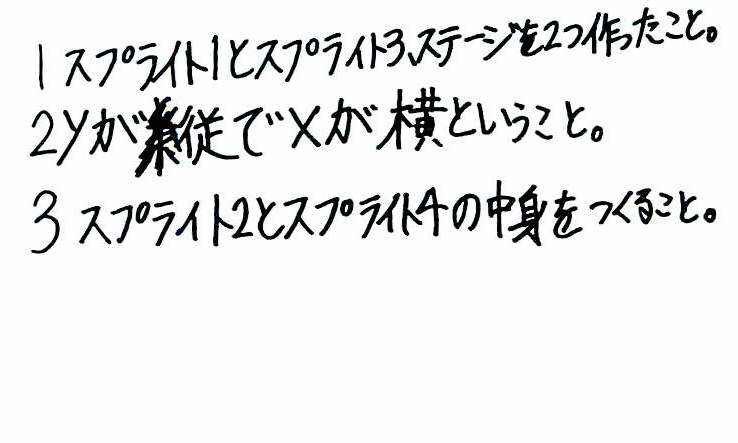 1 スプライト1とスプライト3、ステージを2つ作ったこと。
2 yが従でxが横ということ。
3 スプライト2とスプライト4の中身をつくること。